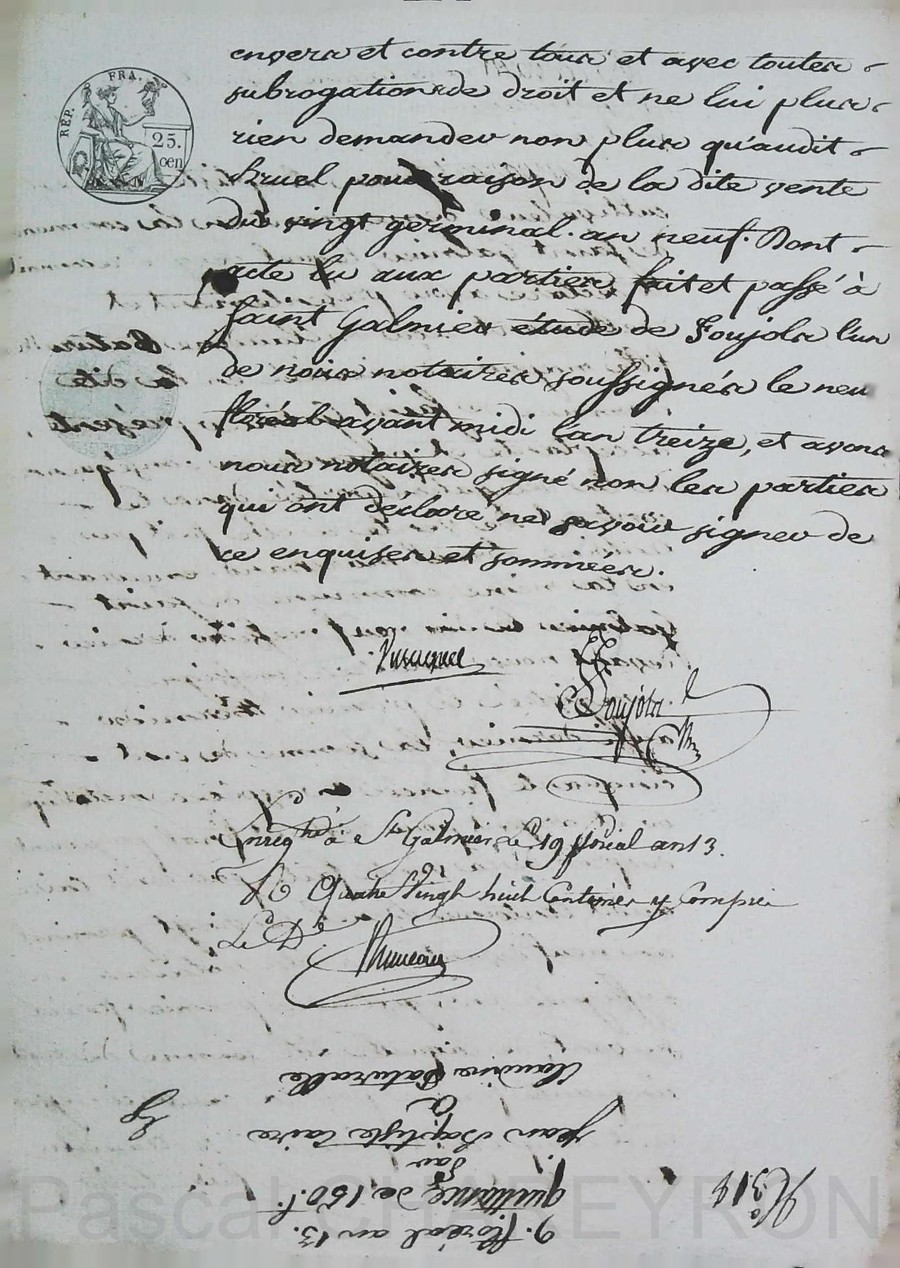 RÉP. FRA.
25.
cen
envers et contre tous et avec toutes
subrogations de droit et ne lui plus
rien demander non plus qu'audit
Bruel pour raison de la dite vente
du vingt germinal an neuf. Dont
acte lu aux parties, fait et passé à
Saint Galmier étude de Foujols l'un
de nous notaires soussignés le neuf
floréal avant midi l'an treize, et avons
nous notaires signé non les parties
qui ont déclaré ne savoir signer de
ce enquises et sommées.
Foujols
Enregtré à St Galmier le 19 floréal an 13.
R Quatre Vingt huit Centimes y Compris
Le D
9. floréal an 13.
quittance de 150 f.
par
Jean Baptiste
à
Claudine Baturelle
Pascal CHAREYRON